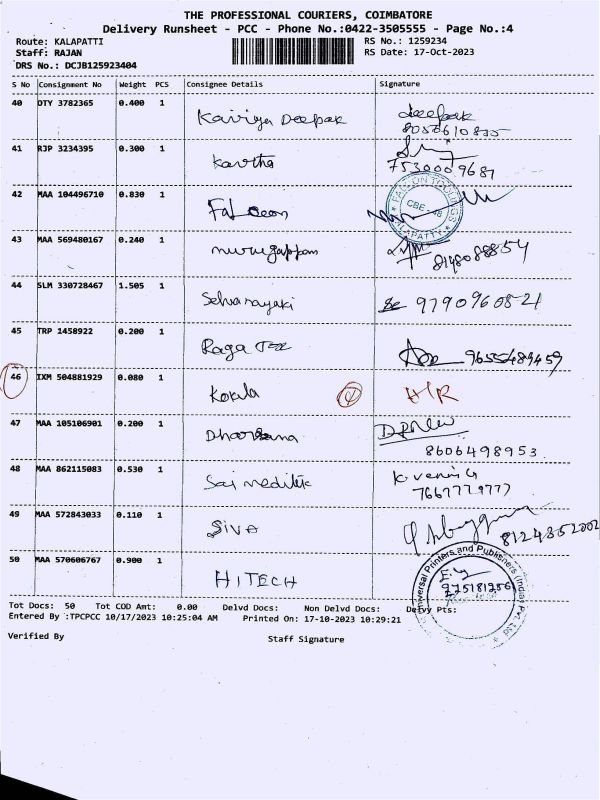 THE PROFESSIONAL COURIERS, COIMBATORE
Delivery Runsheet - PCC - Phone No.:0422-3505555 - Page No.:4
Route: KALAPATTI RS No.: 1259234
Staff: RAJAN RS Date: 17-Oct-2023
DRS No.: DCJB125923404
S No Consignment No Weight PCS Consignee Details Signature
40 OTY 3782365 0.400 1 Kaviya Deepak Deepak
41 RJP 3234395 0.300 1 Kavtha
7530009687
42 MAA 104496710 0.830 1
CBE - 48
43 MAA 569480167 0.240 1 murugappan
44 SLM 330728467 1.505 1 Selvanayaki 9790960821
45 TRP 1458922 0.200 1 Raga 9655489459
46 IXM 504881929 0.080 1 Kokila H/R
47 MAA 105106901 0.200 1 Dharshana
8606498953
48 MAA 862115083 0.530 1 Sai meditek
49 MAA 572843033 0.110 1 SIVA
50 MAA 570606767 0.900 1 HITECH
Universal Printers and Publishers (India) Pvt. Ltd
Tot Docs: 50 Tot COD Amt: 0.00 Delvd Docs: Non Delvd Docs: Delvy Pts:
Entered By :TPCPCC 10/17/2023 10:25:04 AM Printed On: 17-10-2023 10:29:21
Verified By Staff Signature